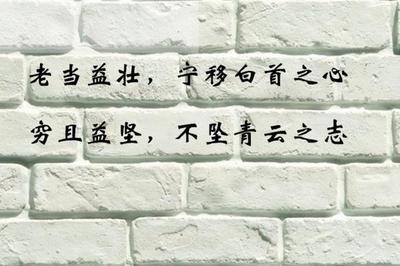 老当益壮，宁移白首之心
穷且益坚，不坠青云之志